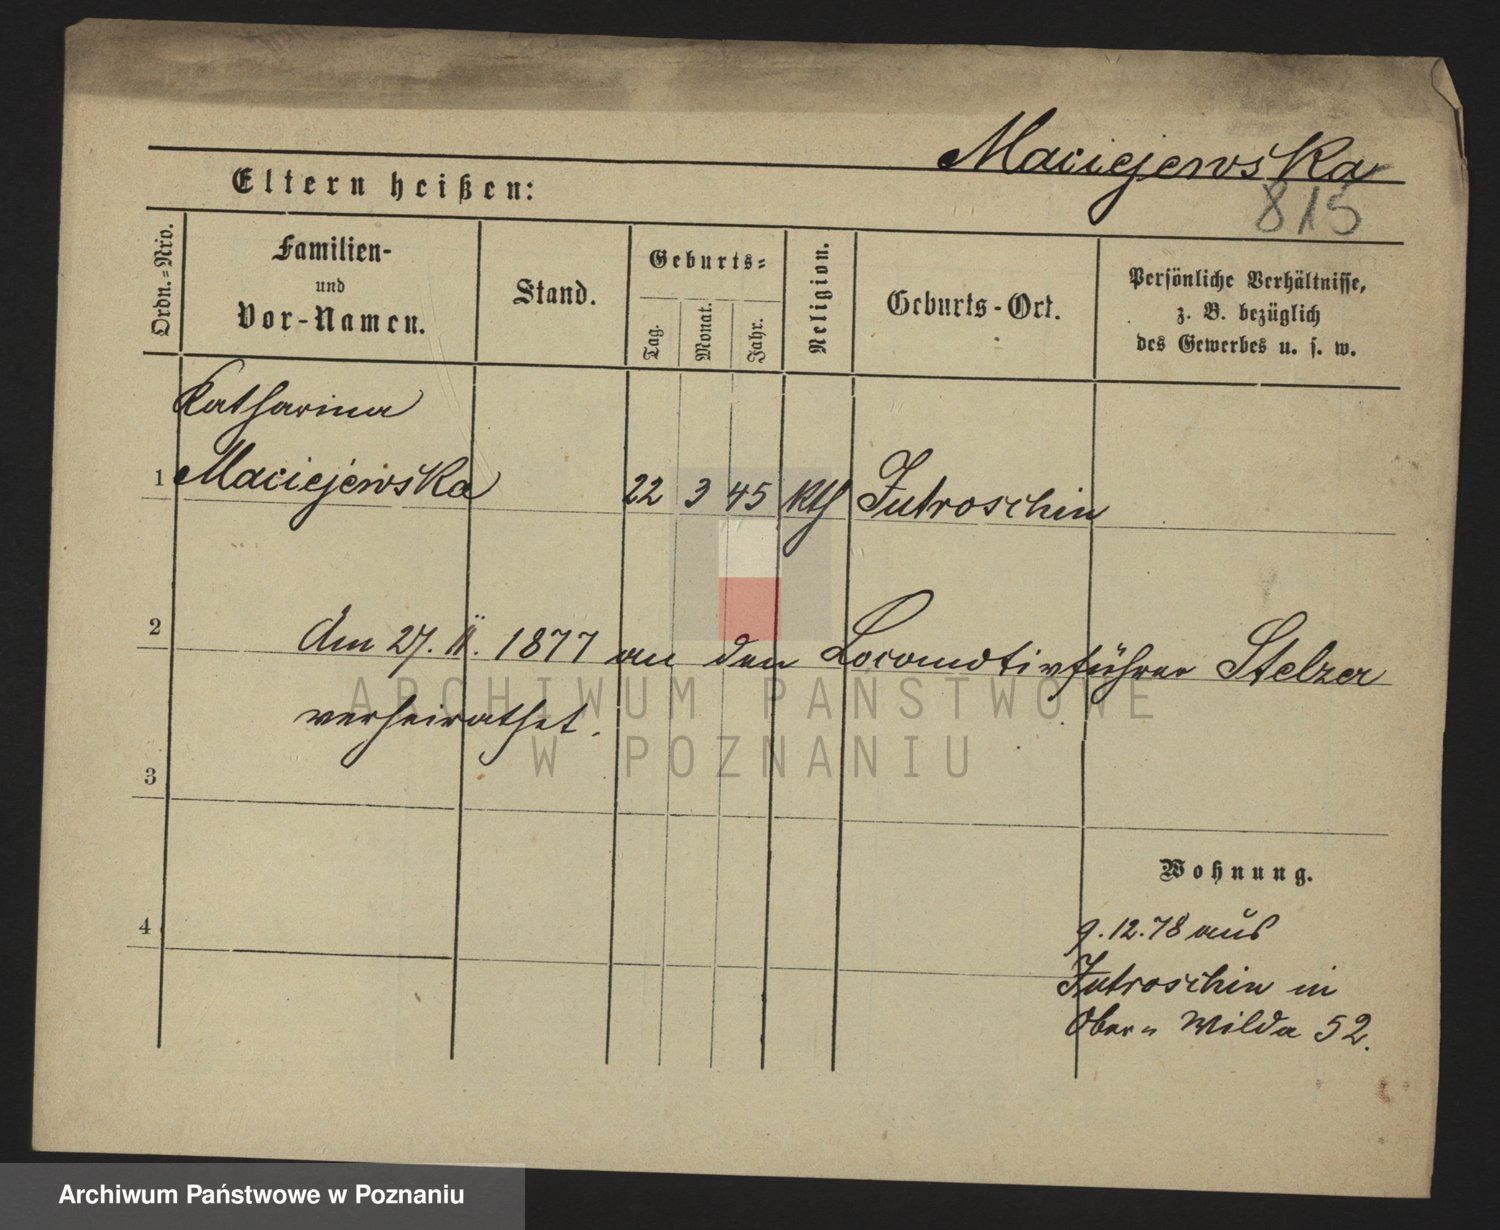 Maciejewska
815
Eltern heißen:
Ordn.=Nro.
Familien-
und
Vor-Namen.
Stand.
Geburts=
Tag.
Monat.
Jahr.
Religion.
Geburts-Ort.
Persönliche Verhältnisse,
z. B. bezüglich
des Gewerbes u. s. w.
Katharina
1 Maciejewska 22 3 45 kth Jutroschin
2
Am 27. II. 1877 an den Locomotivführer Stelzer
verheirathet.
3
Wohnung.
4
9.12.78 aus
Jutroschin in
Ober= Wilda 52.
ARCHIWUM PAŃSTWOWE
W POZNANIU
Archiwum Państwowe w Poznaniu